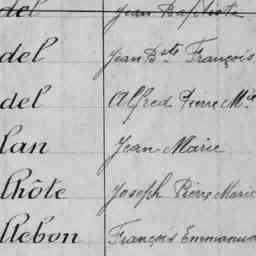 del Jean Baptiste
del Jean Bte François
del Alfred Pierre Mie
lan Jean Marie
lhôte Joseph Pierre Marie
llebon François Emmanuel